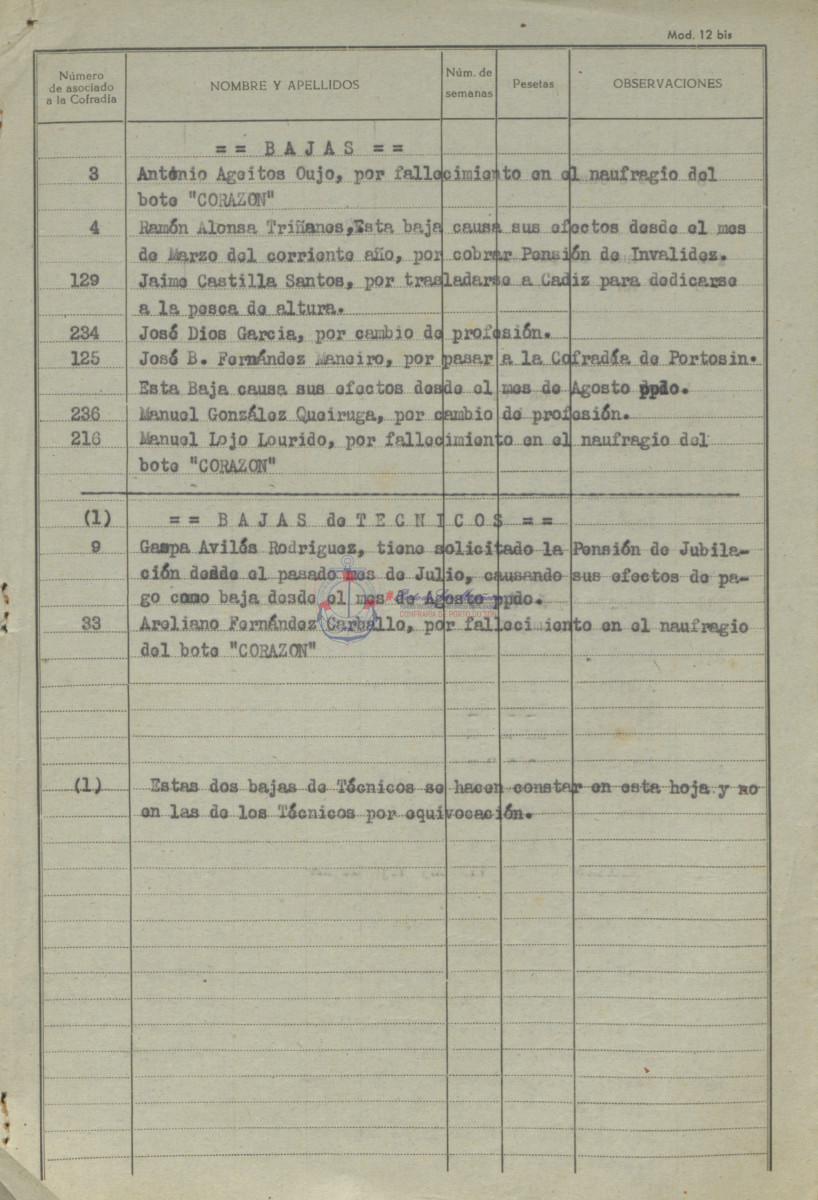 Mod. 12 bis
Número de asociado a la Cofradía NOMBRE Y APELLIDOS Núm. de semanas Pesetas OBSERVACIONES
= = B A J A S = =
3 António Ageitos Oujo, por fallecimiento en el naufragio del
bote "CORAZON"
4 Ramón Alonsa Triñanes,Esta baja causa sus efectos desde el mes
de Marzo del corriente año, por cobrar Pensión de Invalidez.
129 Jaime Castilla Santos, por trasladarse a Cadiz para dedicarse
a la pesca de altura.
234 José Dios Garcia, por cambio de profesión.
125 José B. Fernández Maneiro, por pasar a la Cofradía de Portosin.
Esta Baja causa sus efectos desde el mes de Agosto ppdo.
236 Manuel González Queiruga, por cambio de profesión.
216 Manuel Lojo Lourido, por fallecimiento en el naufragio del
bote "CORAZON"
(1) = = B A J A S de T E C N I C O S = =
9 Gaspa Avilés Rodriguez, tiene solicitado la Pensión de Jubila-
ción desde el pasado mes de Julio, causando sus efectos de pa-
go como baja desde el mes de Agosto ppdo.
CONFRARÍA DE PORTO DO SON
33 Areliano Fernández Carballo, por fallecimiento en el naufragio
del bote "CORAZON"
(1) Estas dos bajas de Técnicos se hacen constar en esta hoja y no
en las de los Técnicos por equivocación.